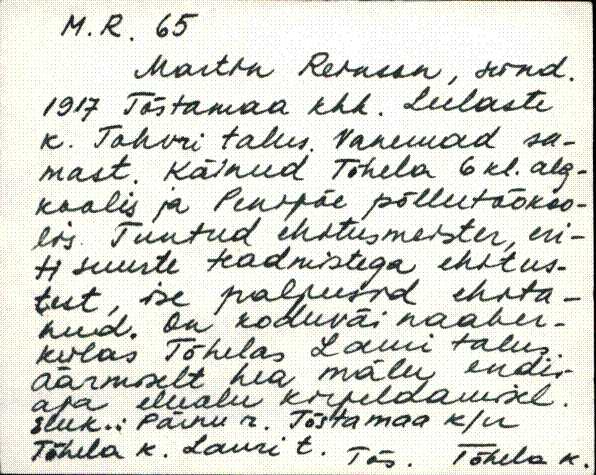 M. R. 65
Martin Reinson, sünd.
1917 Tõstamaa khk. Lulaste
k. Tohvri talus. Vanemad sa-
mast. Käinud Tõhela 6 kl. alg-
koolis ja Pootsi põllutöökoo-
lis. Tuntud ehitusmeister, eri-
ti suurte teadmistega ehitus-
test, ise paljusid ehita-
nud. On koduväi naaber-
külas Tõhelas Lauri talus.
Äärmiselt hea mälu endis-
aja eluolu kirjeldamisel.
Eluk.: Pärnu r. Tõstamaa k/n
Tõhela k. Lauri t. Tõs. Tõhela k.